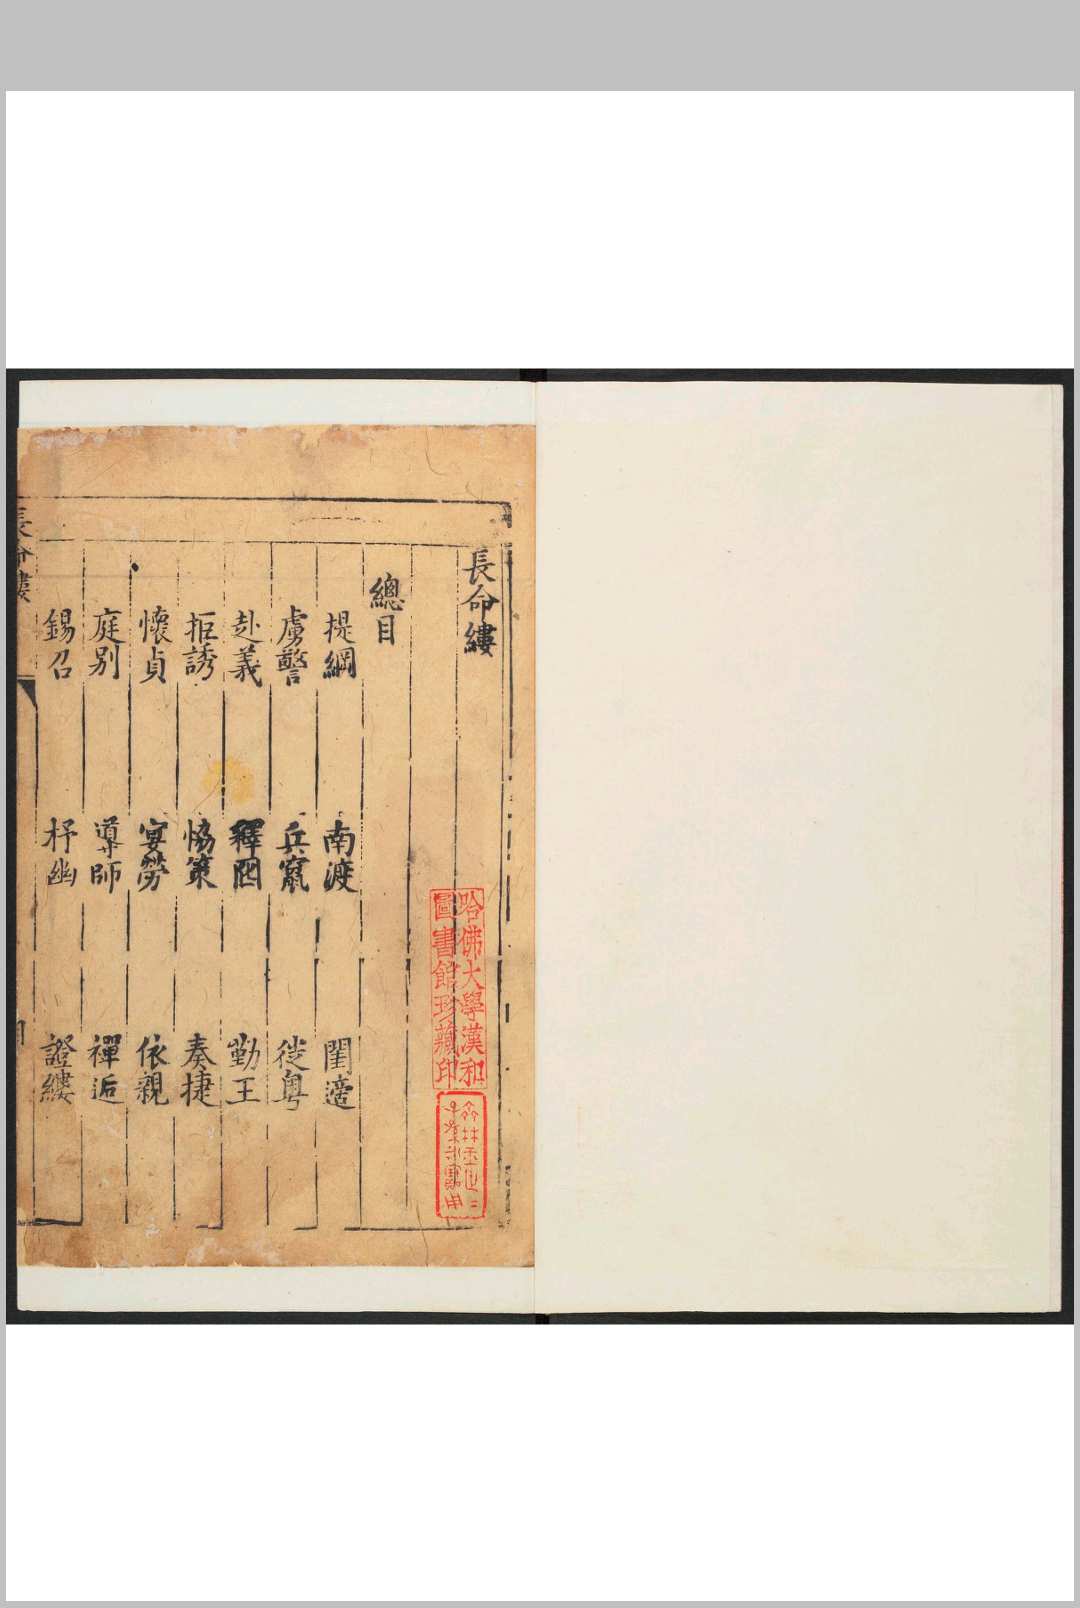 長命縷
總目
提綱 南渡 閨適
虜警 兵竄 從粤
赴義 釋囚 勤王
拒誘 恊策 奏捷
懷貞 宴勞 依親
庭别 導師 禪逅
錫召 杼幽 證縷
長命縷
哈佛大學漢和
圖書館珍藏印